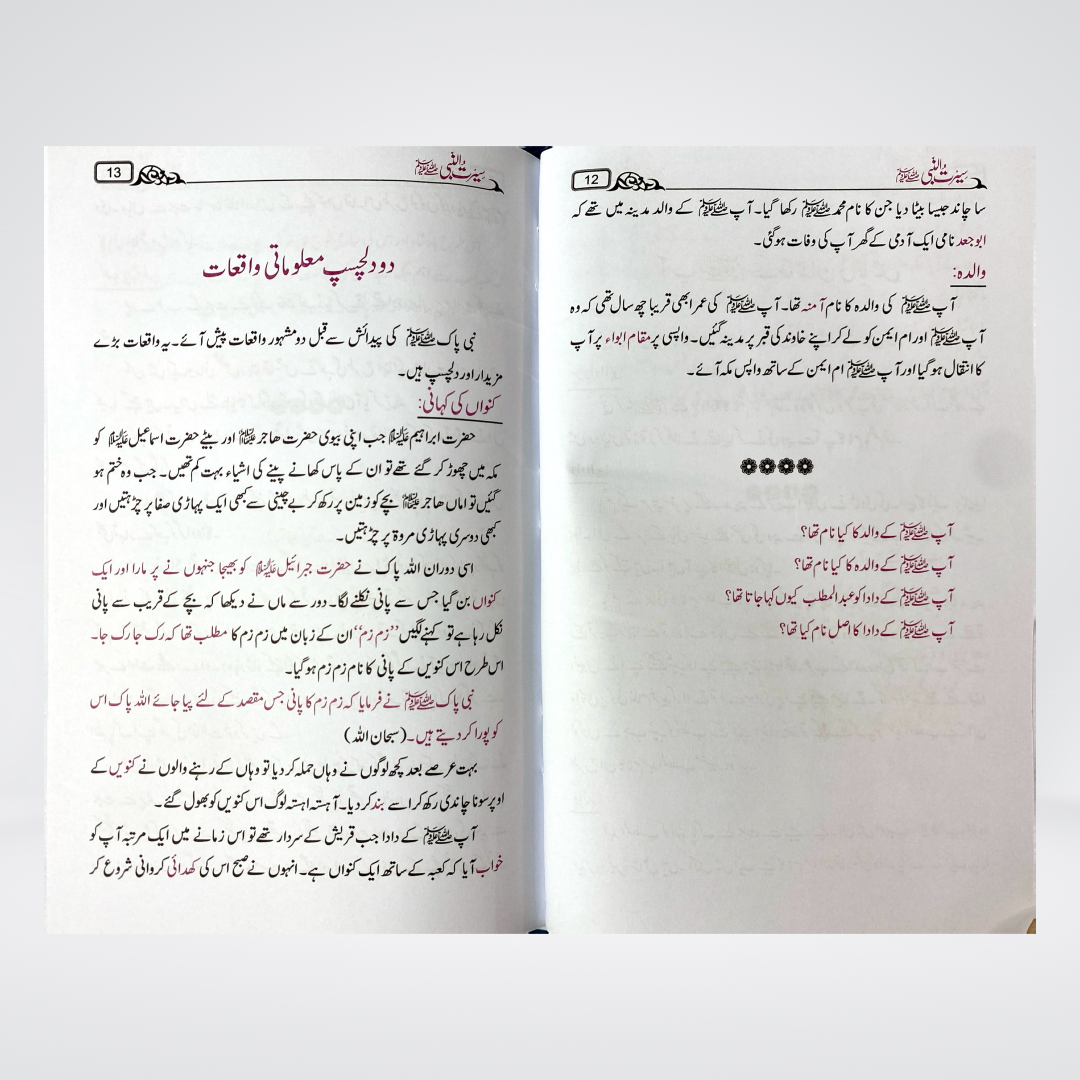 سیرت النبی ﷺ
12
سا چاند جیسا بیٹا دیا جن کا نام محمد ﷺ رکھا گیا۔ آپ ﷺ کے والد مدینہ میں تھے کہ
ابوجعد نامی ایک آدمی کے گھر آپ کی وفات ہوگئی۔
والدہ:
آپ ﷺ کی والدہ کا نام آمنہ تھا۔ آپ ﷺ کی عمر ابھی قریبا چھ سال تھی کہ وہ
آپ ﷺ اور ام ایمن کو لے کر اپنے خاوند کی قبر پر مدینہ گئیں۔ واپسی پر مقام ابواء پر آپ
کا انتقال ہوگیا اور آپ ﷺ ام ایمن کے ساتھ واپس مکہ آئے۔
آپ ﷺ کے والد کا کیا نام تھا؟
آپ ﷺ کے والدہ کا کیا نام تھا؟
آپ ﷺ کے دادا کو عبدالمطلب کیوں کہا جاتا تھا؟
آپ ﷺ کے دادا کا اصل نام کیا تھا؟
سیرت النبی ﷺ
13
دو دلچسپ معلوماتی واقعات
نبی پاک ﷺ کی پیدائش سے قبل دو مشہور واقعات پیش آئے۔ یہ واقعات بڑے
مزیدار اور دلچسپ ہیں۔
کنواں کی کہانی:
حضرت ابراہیم علیہ السلام جب اپنی بیوی حضرت ھاجر علیہا السلام اور بیٹے حضرت اسماعیل علیہ السلام کو
مکہ میں چھوڑ کر گئے تھے تو ان کے پاس کھانے پینے کی اشیاء بہت کم تھیں۔ جب وہ ختم ہو
گئیں تو اماں ھاجر علیہا السلام بچے کو زمین پر رکھ کر بے چینی سے کبھی ایک پہاڑی صفا پر چڑھتیں اور
کبھی دوسری پہاڑی مروۃ پر چڑھتیں۔
اسی دوران اللہ پاک نے حضرت جبرائیل علیہ السلام کو بھیجا جنہوں نے پر مارا اور ایک
کنواں بن گیا جس سے پانی نکلنے لگا۔ دور سے ماں نے دیکھا کہ بچے کے قریب سے پانی
نکل رہا ہے تو کہنے لگیں ’’زم زم‘‘ ان کے زبان میں زم زم کا مطلب تھا کہ رک جا رک جا۔
اس طرح اس کنویں کے پانی کا نام زم زم ہوگیا۔
نبی پاک ﷺ نے فرمایا کہ زم زم کا پانی جس مقصد کے لئے پیا جائے اللہ پاک اس
کو پورا کر دیتے ہیں۔ (سبحان اللہ)
بہت عرصے بعد کچھ لوگوں نے وہاں حملہ کر دیا تو وہاں کے رہنے والوں نے کنویں کے
اوپر سونا چاندی رکھ کر اسے بند کر دیا۔ آہستہ اہستہ لوگ اس کنویں کو بھول گئے۔
آپ ﷺ کے دادا جب قریش کے سردار تھے تو اس زمانے میں ایک مرتبہ آپ کو
خواب آیا کہ کعبہ کے ساتھ ایک کنواں ہے۔ انہوں نے صبح اس کی کھدائی کروانی شروع کر